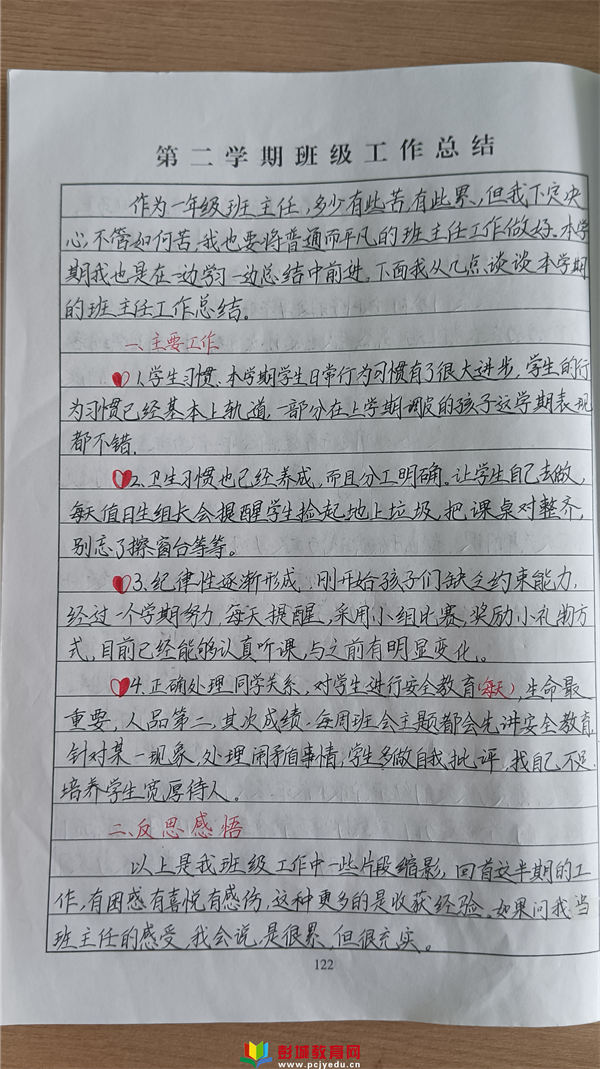 第二学期班级工作总结
作为一年级班主任，多少有些苦，有些累，但我下定决
心，不管如何苦，我也要将普通而平凡的班主任工作做好。本学
期我也是在一边学习一边总结中前进，下面我从几点谈谈本学期
的班主任工作总结。
一、主要工作
1.学生习惯：本学期学生日常行为习惯有了很大进步，学生的行
为习惯已经基本上轨道，一部分在上学期调皮的孩子这学期表现
都不错。
2.卫生习惯也已经养成，而且分工明确。让学生自己去做，
每天值日生组长会提醒学生捡起地上垃圾，把课桌对整齐，
别忘了擦窗台等等。
3.纪律性逐渐形成，刚开始孩子们缺乏约束能力，
经过一个学期努力，每天提醒，采用小组比赛，奖励小礼物方
式，目前已经能够认真听课，与之前有明显变化。
4.正确处理同学关系，对学生进行安全教育(每天)，生命最
重要，人品第二，其次成绩。每周班会主题都会先讲安全教育，
针对某一现象，处理闹矛盾事情，学生多做自我批评，找自己不足，
培养学生宽厚待人。
二、反思感悟
以上是我班级工作中一些片段缩影，回首这半期的工
作，有困惑有喜悦有感伤，这种更多的是收获经验。如果问我当
班主任的感受，我会说，是很累，但很充实。
122
彭城教育网
www.pcjyedu.cn